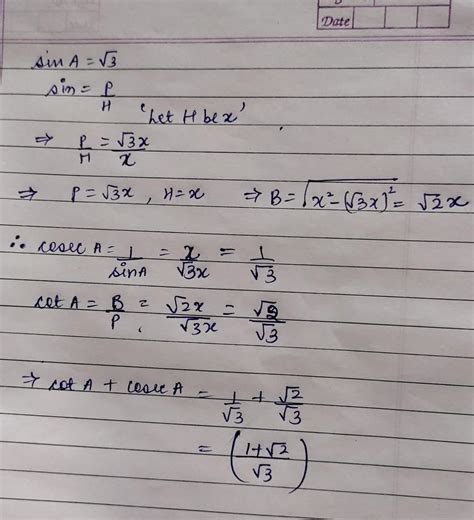 Date
sin A = √3
sin = P/H
'Let H be x'
⇒ P/H = √3x/x
⇒ P = √3x , H = x ⇒ B = √x² - (√3x)² = √2x
∴ cosec A = 1/sin A = x/√3x = 1/√3
cot A = B/P = √2x/√3x = √2/√3
⇒ cot A + cosec A = 1/√3 + √2/√3
= (1+√2/√3)